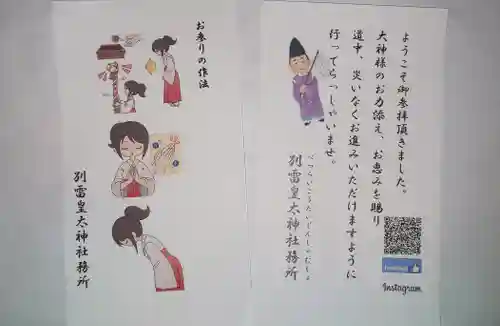 お参りの作法
別雷皇太神社務所
ようこそ御参拝頂きました。
大神様のお力添え、お恵みを賜り
道中、災いなくお進みいただけますように
行ってらっしゃいませ。
べつらいこうたいじんしゃむしょ
別雷皇太神社務所
Instagram